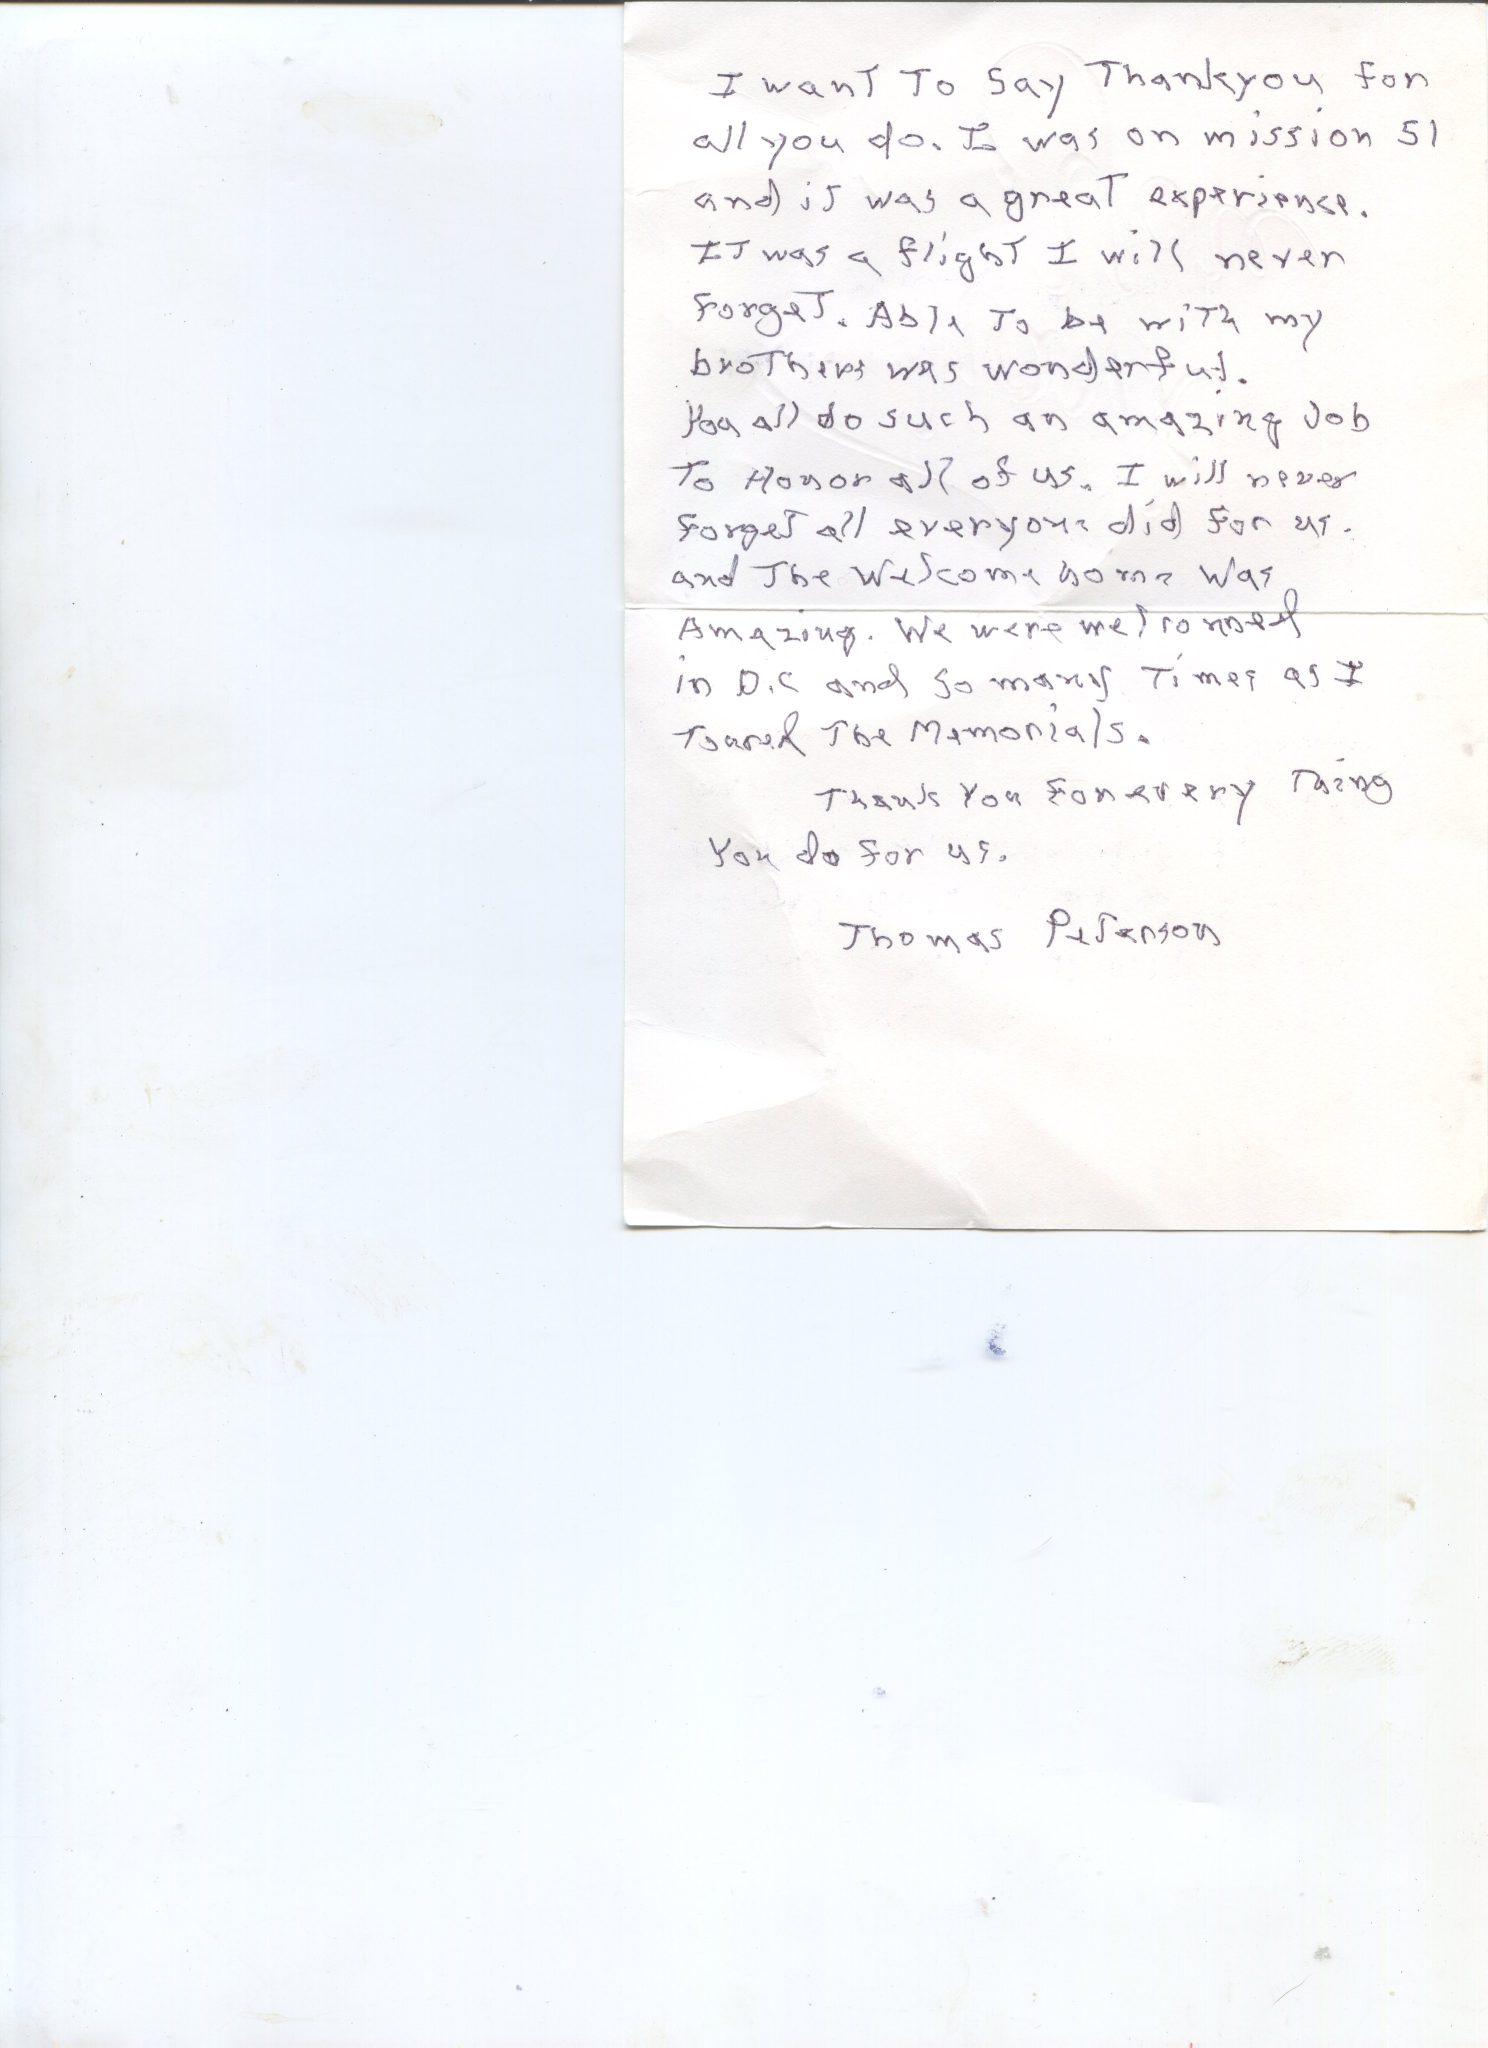 I want To Say Thankyou for
all you do. I was on mission 51
and it was a great experience.
IT was a flight I will never
forget. Able To be with my
brothers was wonderful.
You all do such an amazing Job
To Honor all of us. I will never
forget all everyone did for us.
and The Welcome home was
Amazing. We were welcomed
in D.C and so many Times as I
Toured The Memorials.
Thank You For every Thing
You do for us.
Thomas Peterson